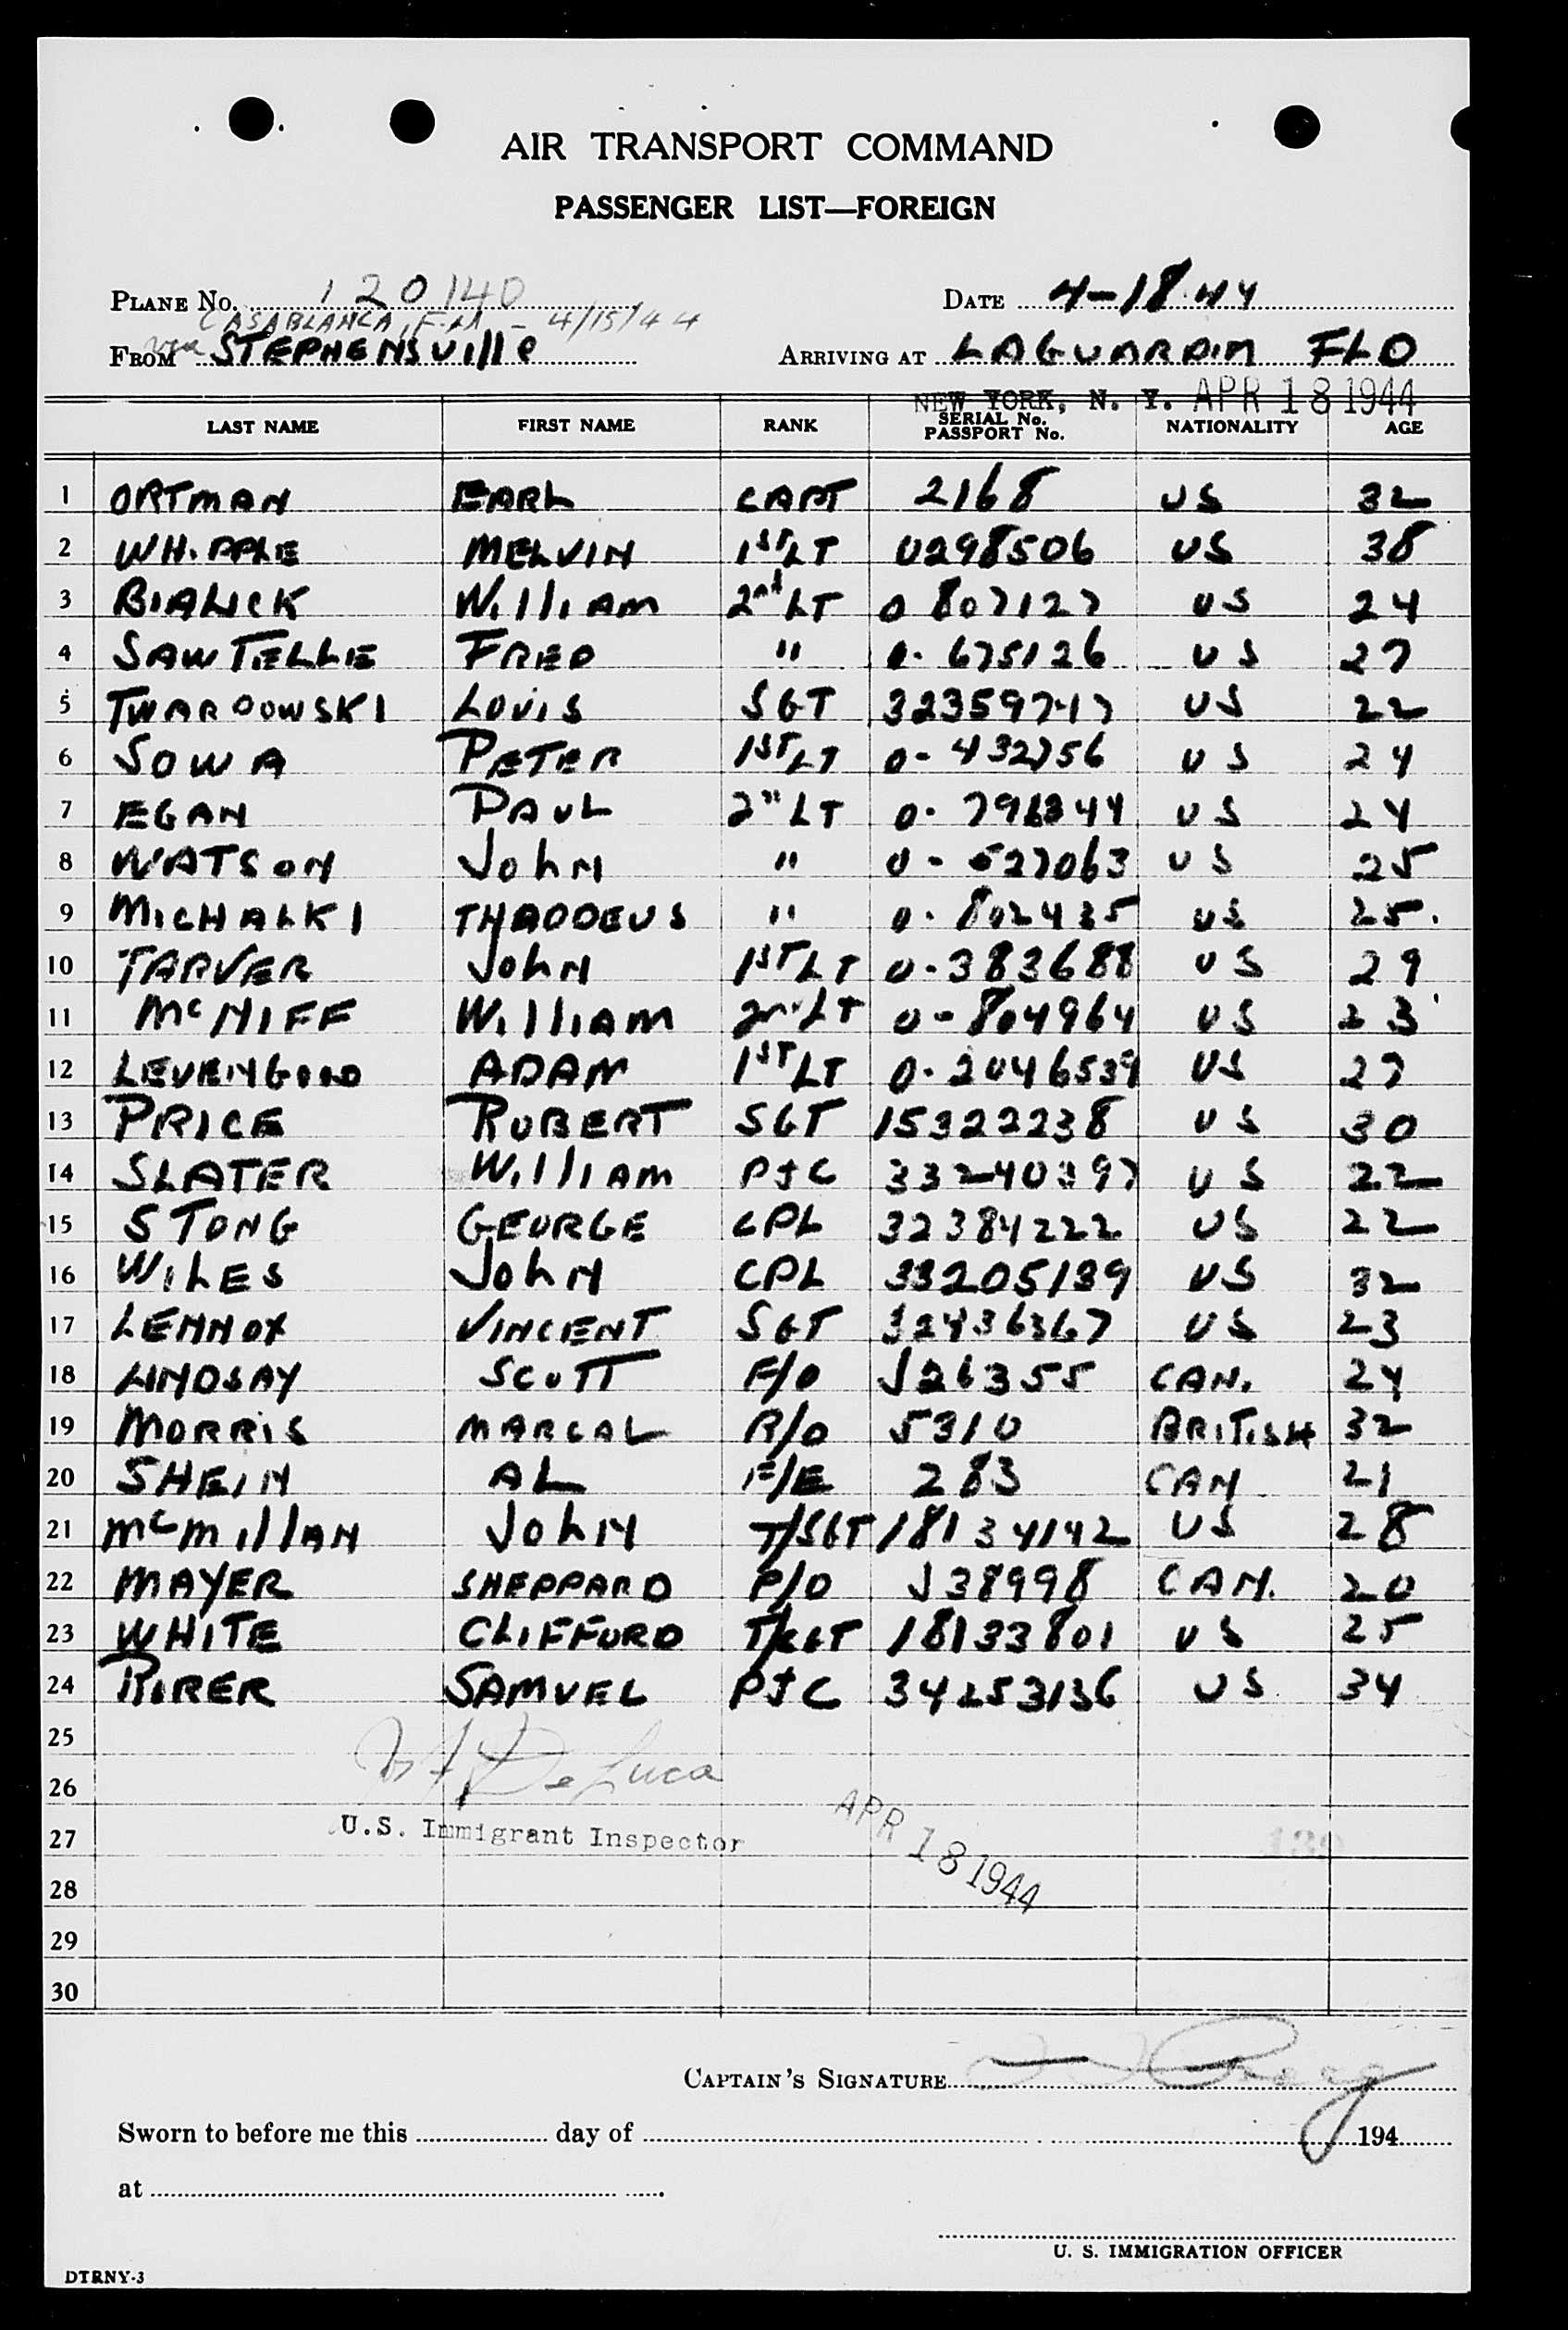 AIR TRANSPORT COMMAND
PASSENGER LIST—FOREIGN
PLANE No. 120140 DATE 4-18-44
CASABLANCA, F.M. - 4/15/44
FROM via STEPHENSVille ARRIVING AT LAGUARDIA FLD
NEW YORK, N. Y. APR 18 1944
LAST NAME FIRST NAME RANK SERIAL No. PASSPORT No. NATIONALITY AGE
1 ORTMAN EARL CAPT 2168 US 32
2 WHIPPLE MELVIN 1ST LT 0298506 US 38
3 BIALICK William 2nd LT 0 807127 US 24
4 SAWTELLE FRED " 0-675126 US 27
5 TWARDOWSKI LOUIS SGT 32359717 US 22
6 SOWA PETER 1ST LT 0-432756 US 24
7 EGAN PAUL 2" LT 0-796344 US 24
8 WATSON John " 0-527063 US 25
9 MICHALKI THADDEUS " 0-802435 US 25.
10 TARVER John 1ST LT 0-383688 US 29
11 McNIFF William 2nd LT 0-804964 US 23
12 LEVENGOOD ADAM 1ST LT 0-2046539 US 27
13 PRICE ROBERT SGT 15322238 US 30
14 SLATER William PFC 33240397 US 22
15 STONG GEORGE CPL 32384222 US 22
16 WILES John CPL 33205139 US 32
17 LENNOX VINCENT SGT 32436367 US 23
18 LINDSAY SCOTT F/O J26355 CAN. 24
19 MORRIS MARCAL R/O 5310 BRITISH 32
20 SHEIN AL F/E 283 CAN 21
21 McMillAN JohN T/SGT 18134142 US 28
22 MAYER SHEPPARD P/O J38998 CAN. 20
23 WHITE CLIFFORD T/SGT 18133801 US 25
24 RIRER SAMUEL PFC 34253136 US 34
25
De Luca
26
U.S. Immigrant Inspector APR 18 1944
27
28
29
30
CAPTAIN'S SIGNATURE
Sworn to before me this day of 194
at
U. S. IMMIGRATION OFFICER
DTRNY-3